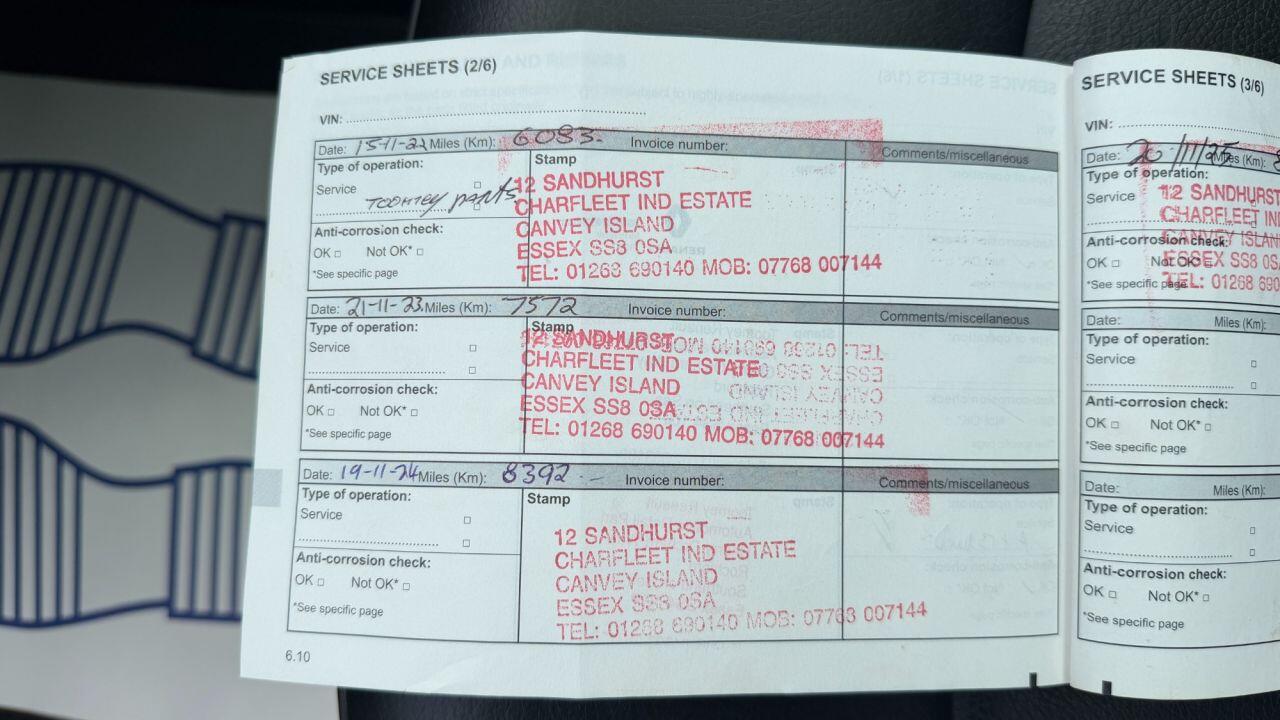 SERVICE SHEETS (2/6)
VIN:
Date: 15-11-22 Miles (Km): 6083. Invoice number: Comments/miscellaneous
Type of operation:
Stamp
Service
TOOMEY PARTS
12 SANDHURST
CHARFLEET IND ESTATE
CANVEY ISLAND
ESSEX SS8 0SA
TEL: 01268 690140 MOB: 07768 007144
Anti-corrosion check:
OK Not OK*
*See specific page
Date: 21-11-23 Miles (Km): 7572 Invoice number: Comments/miscellaneous
Type of operation:
Stamp
Service
12 SANDHURST
CHARFLEET IND ESTATE
CANVEY ISLAND
ESSEX SS8 0SA
TEL: 01268 690140 MOB: 07768 007144
Anti-corrosion check:
OK Not OK*
*See specific page
Date: 19-11-24 Miles (Km): 8392 Invoice number: Comments/miscellaneous
Type of operation:
Stamp
Service
12 SANDHURST
CHARFLEET IND ESTATE
CANVEY ISLAND
ESSEX SS8 0SA
TEL: 01268 690140 MOB: 07768 007144
Anti-corrosion check:
OK Not OK*
*See specific page
6.10
SERVICE SHEETS (3/6)
VIN:
Date: 20/11/25 Miles (Km):
Type of operation:
Service
12 SANDHURST
CHARFLEET IN
CANVEY ISLAN
ESSEX SS8 0S
TEL: 01268 690
Anti-corrosion check:
OK Not OK*
*See specific page
Date: Miles (Km):
Type of operation:
Service
Anti-corrosion check:
OK Not OK*
*See specific page
Date: Miles (Km):
Type of operation:
Service
Anti-corrosion check:
OK Not OK*
*See specific page